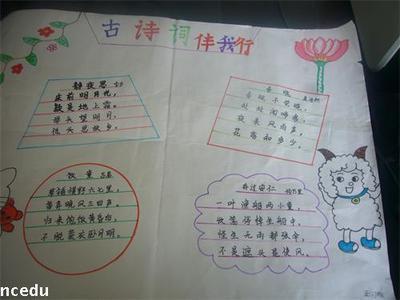 古诗词伴我行
静夜思 李白
床前明月光，
疑是地上霜。
举头望明月，
低头思故乡。
春晓 孟浩然
春眠不觉晓，
处处闻啼鸟。
夜来风雨声，
花落知多少。
牧童 吕岩
草铺横野六七里，
笛弄晚风三四声。
归来饱饭黄昏后，
不脱蓑衣卧月明。
舟过安仁 杨万里
一叶渔船两小童，
收篙停棹坐船中。
怪生无雨都张伞，
不是遮头是使风。
ncedu